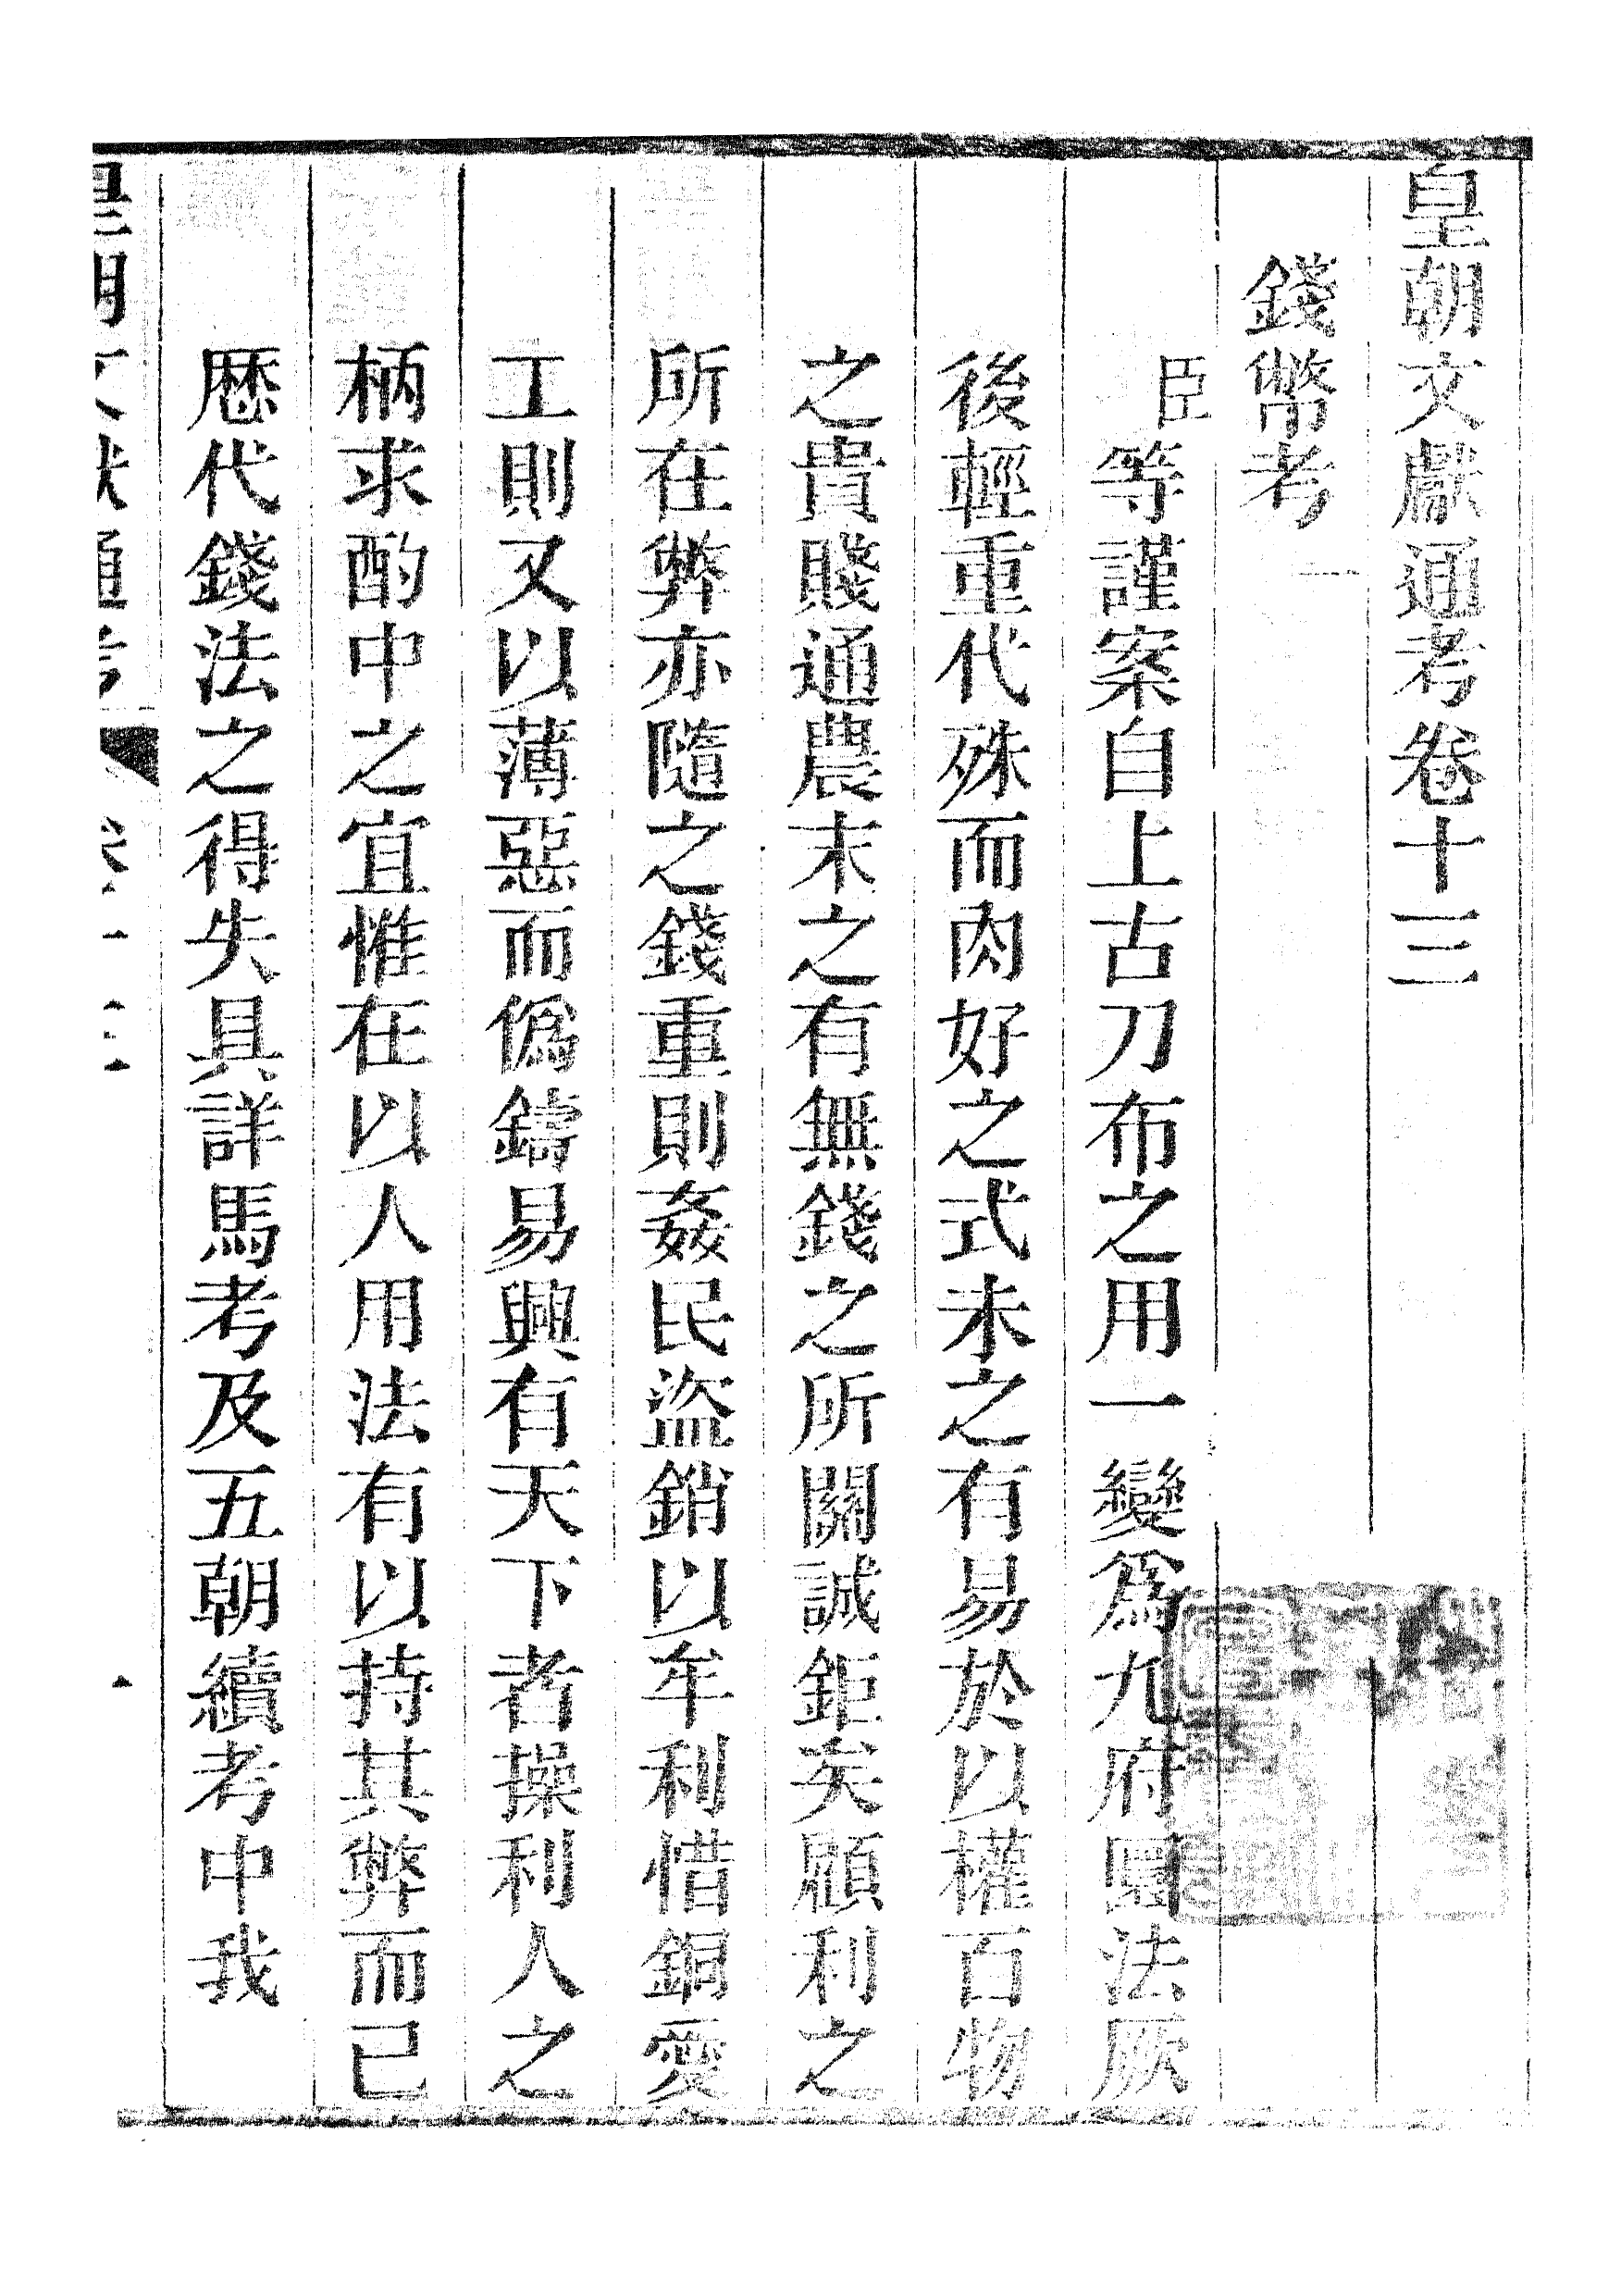 皇朝文獻通考卷十三
錢幣考一
臣等謹案自上古刀布之用一變爲九府圜法厥
後輕重代殊而肉好之式未之有易於以權百物
之貴賤通農末之有無錢之所關誠鉅矣顧利之
所在弊亦隨之錢重則姦民盜銷以牟利惜銅愛
工則又以薄惡而僞鑄易興有天下者操利人之
柄求酌中之宜惟在以人用法有以持其弊而已
歴代錢法之得失具詳馬考及五朝續考中我